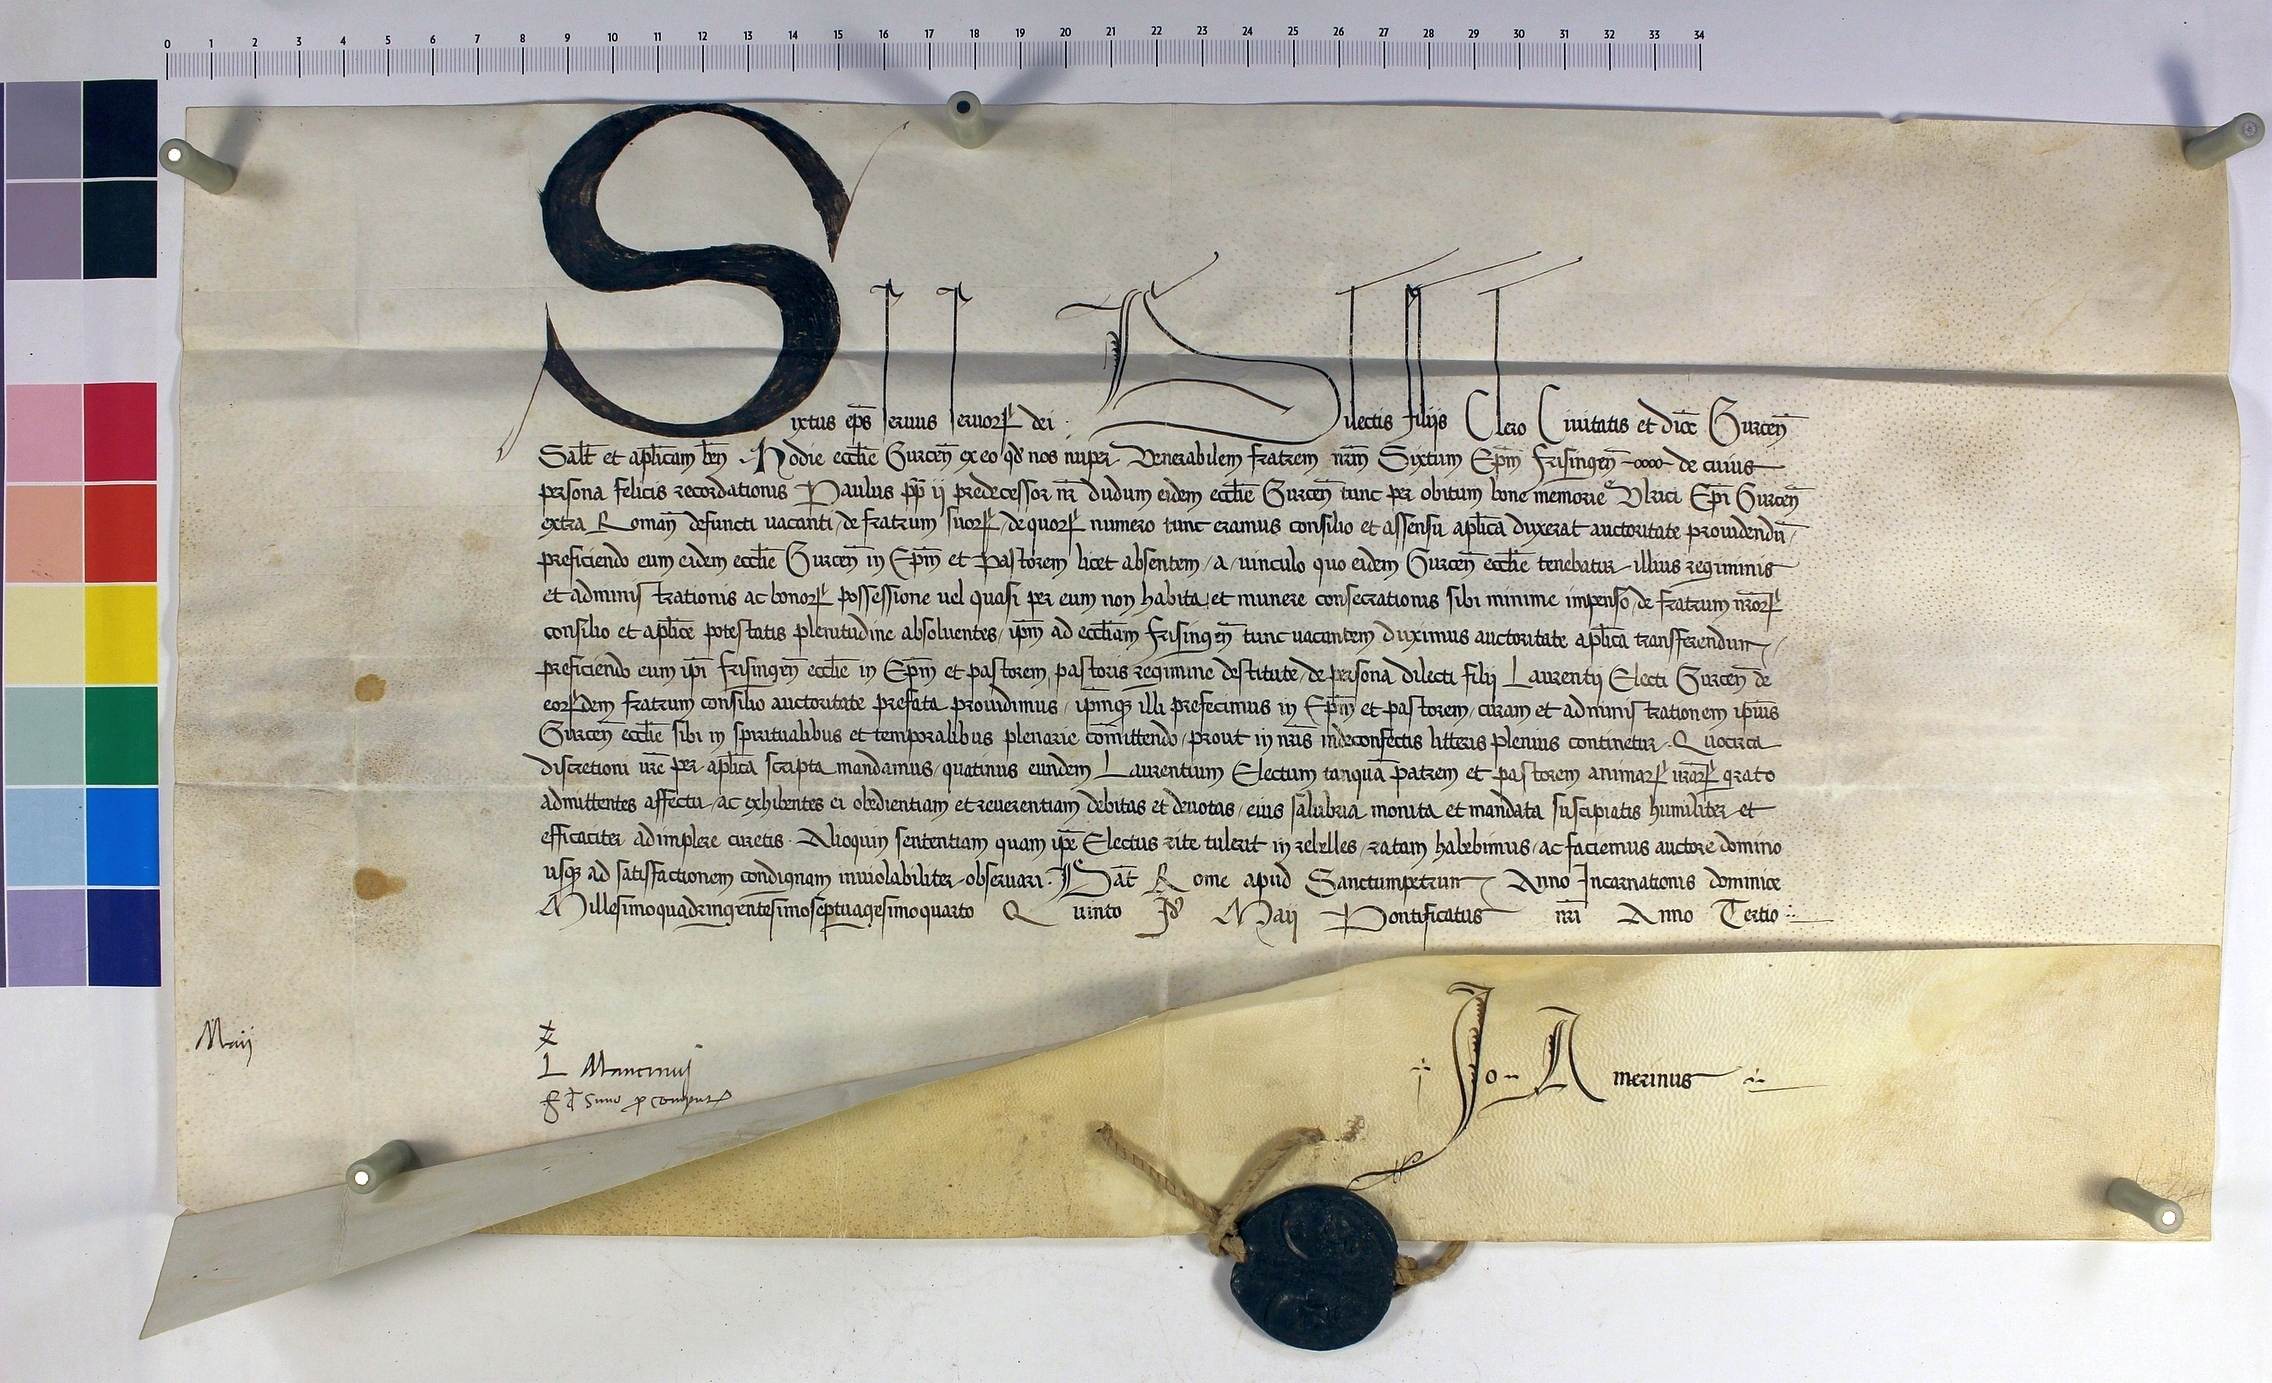 0 1 2 3 4 5 6 7 8 9 10 11 12 13 14 15 16 17 18 19 20 21 22 23 24 25 26 27 28 29 30 31 32 33 34
Sixtus ep̄s servus servorꝝ dei. Dilectis filiis Clero Civitatis et dioc̄ Gurcen̄
Salt̄ et aplicam ben̄. Hodie eccl̄ie Gurcen̄ ex eo qd̄ nos nuper Venerabilem fratrem nrm̄ Sixtum Epm̄ Frisingen̄ de cuius
persona felicis recordationis Paulus pp̄ ii predecessor nr̄ dudum eidem eccl̄ie Gurcen̄ tunc per obitum bone memorie Vlrici Epī Gurcen̄
extra Roman̄ defuncti vacanti, de fratrum suorꝝ, de quorꝝ numero tunc eramus consilio et assensu apl̄ica duxerat auctoritate providendū,
preficiendo eum eidem eccl̄ie Gurcen̄ in Epm̄ et Pastorem licet absentem, a, vinculo quo eidem Gurcen̄ eccl̄ie tenebatur illius regiminis
et administrationis ac bonorꝝ possessione vel quasi per eum non habita, et munere consecrationis sibi minime impenso, de fratrum nr̄orꝝ
consilio et apl̄ice potestatis plenitudine absolventes, ipm̄ ad eccl̄iam Frisingen̄ tunc vacantem duximus auctoritate apl̄ica transferendum,
preficiendo eum ipi̅ Frisingen̄ eccl̄ie in Epm̄ et pastorem, pastoris regimine destitute, de persona dilecti filij Laurentij Electi Gurcen̄ de
eorꝝdem fratrum consilio auctoritate prefata providimus, ipm̄qꝫ illi prefecimus in Epm̄ et pastorem, curam et administrationem ipsius
Gurcen̄ eccl̄ie sibi in spiritualibus et temporalibus plenarie com̄ittendo, prout in nr̄is inde confectis litteris plenius continetur. Quocirca
discretioni vr̄e per apl̄ica scripta mandamus, quatinus eundem Laurentium Electum tanquā patrem et pastorem animarꝝ vr̄arꝝ grato
admittentes affectu, ac exhibentes ei obedientiam et reverentiam debitas et devotas, eius salubria monita et mandata suscipiatis humiliter et
efficaciter adimplere curetis. Alioquin sententiam quam ipe̅ Electus rite tulerit in rebelles, ratam habebimus, ac faciemus auctore domino
usqꝫ ad satisfactionem condignam inviolabiliter observari. Dat̄ Rome apud Sanctumpetrum Anno Incarnationis dominice
Millesimoquadringentesimoseptuagesimoquarto Quinto Id̄ Maij Pontificatus nr̄i Anno Tertio
Maij
L Mancinuj
Jo. Amerinus